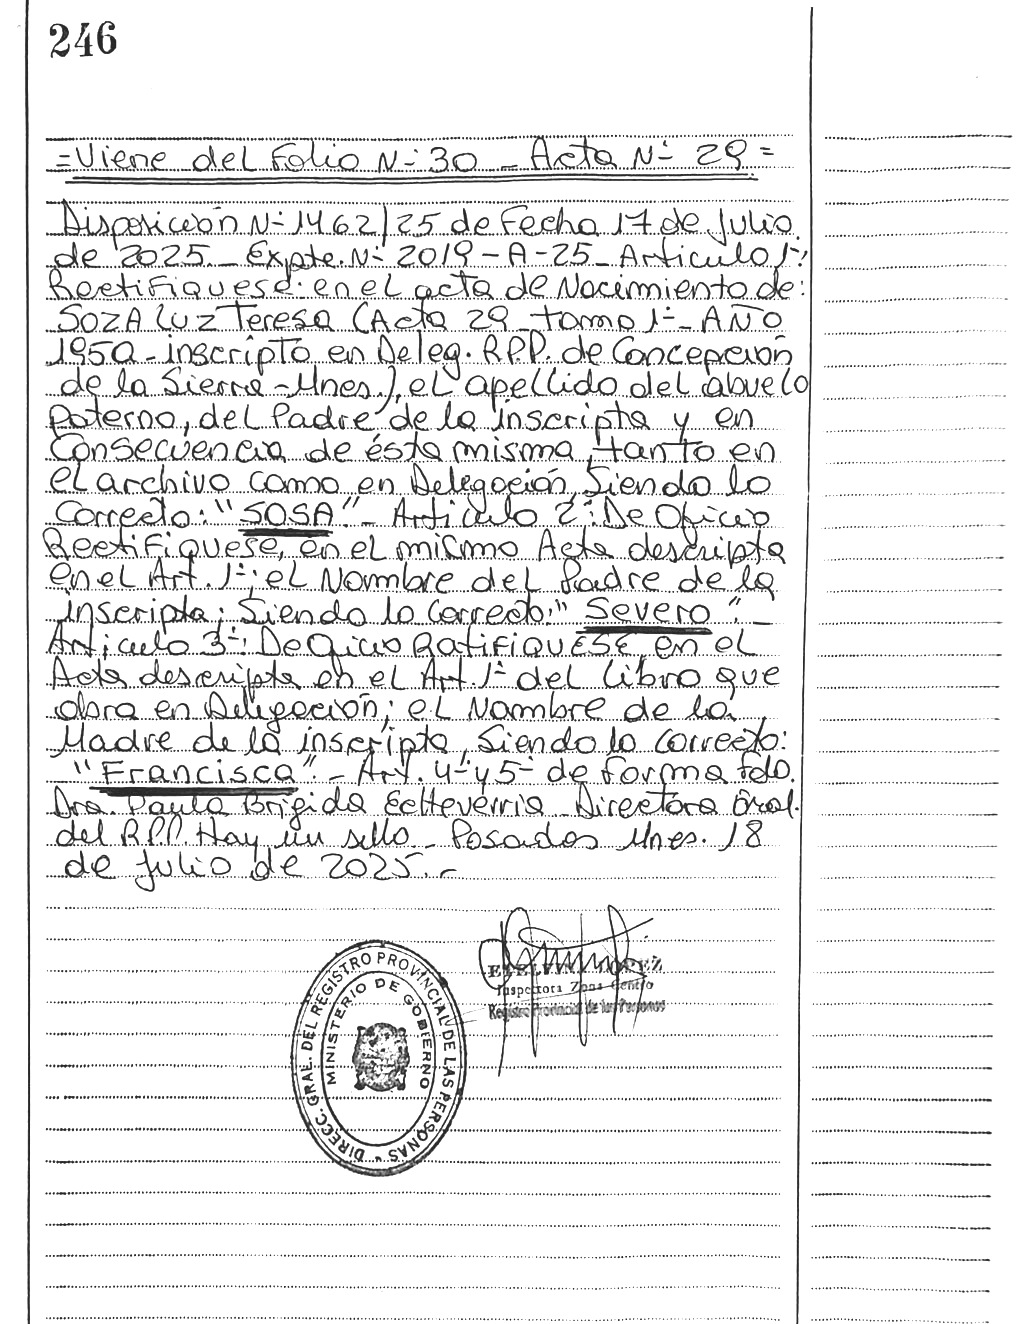 246
=Viene del Folio N° 30 - Acta N° 29=
Disposición N° 1462/25 de Fecha 17 de Julio
de 2025.- Expte. N° 2019-A-25- Articulo 1°:
Rectifiquese: en el acta de Nacimiento de:
SOZA LUZ Teresa (Acta 29 - tomo 1° - AÑO
1950 - inscripto en Deleg. R.P.P. de Concepción
de la Sierra - Mnes.), el apellido del abuelo
paterno, del Padre de la inscripta y en
consecuencia de ésta misma, tanto en
el archivo como en Delegación, Siendo lo
Correcto: "SOSA".- Articulo 2°: De Oficio
Rectifiquese, en el mismo Acta descripta
en el Art. 1°; el Nombre del Padre de la
inscripta; Siendo lo correcto: "Severo".-
Articulo 3°: De Oficio RatifiQUESE, en el
Acta descripta en el Art. 1° del libro que
obra en Delegación; el Nombre de la
Madre de la inscripta, Siendo lo correcto:
"Francisca".- Art. 4° y 5° de forma fdo.
Dra. Paula Brigida Echeverria - Directora Gral.
del R.P.P. Hay un sello - Posadas Mnes. 18
de Julio de 2025.-
Inspectora Zona Centro
Registro Provincial de las Personas
DIRECC. GRAL. DEL REGISTRO PROVINCIAL DE LAS PERSONAS
MINISTERIO DE GOBIERNO